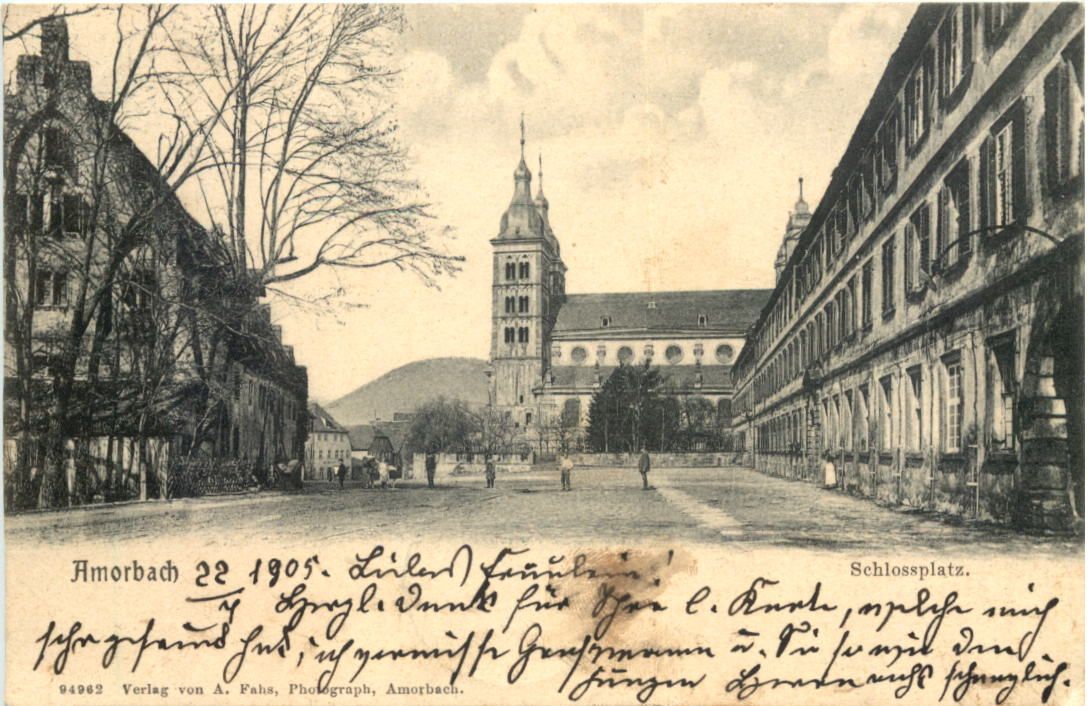 Amorbach 22/4 1905. Liebes Fräulein!
Schlossplatz.
Herzl. Dank für Ihre l. Karte, welche mich
sehr gefreut hat, ich vermisse u. Sie sowie den
jungen Herrn nicht
94962 Verlag von A. Fahs, Photograph, Amorbach.